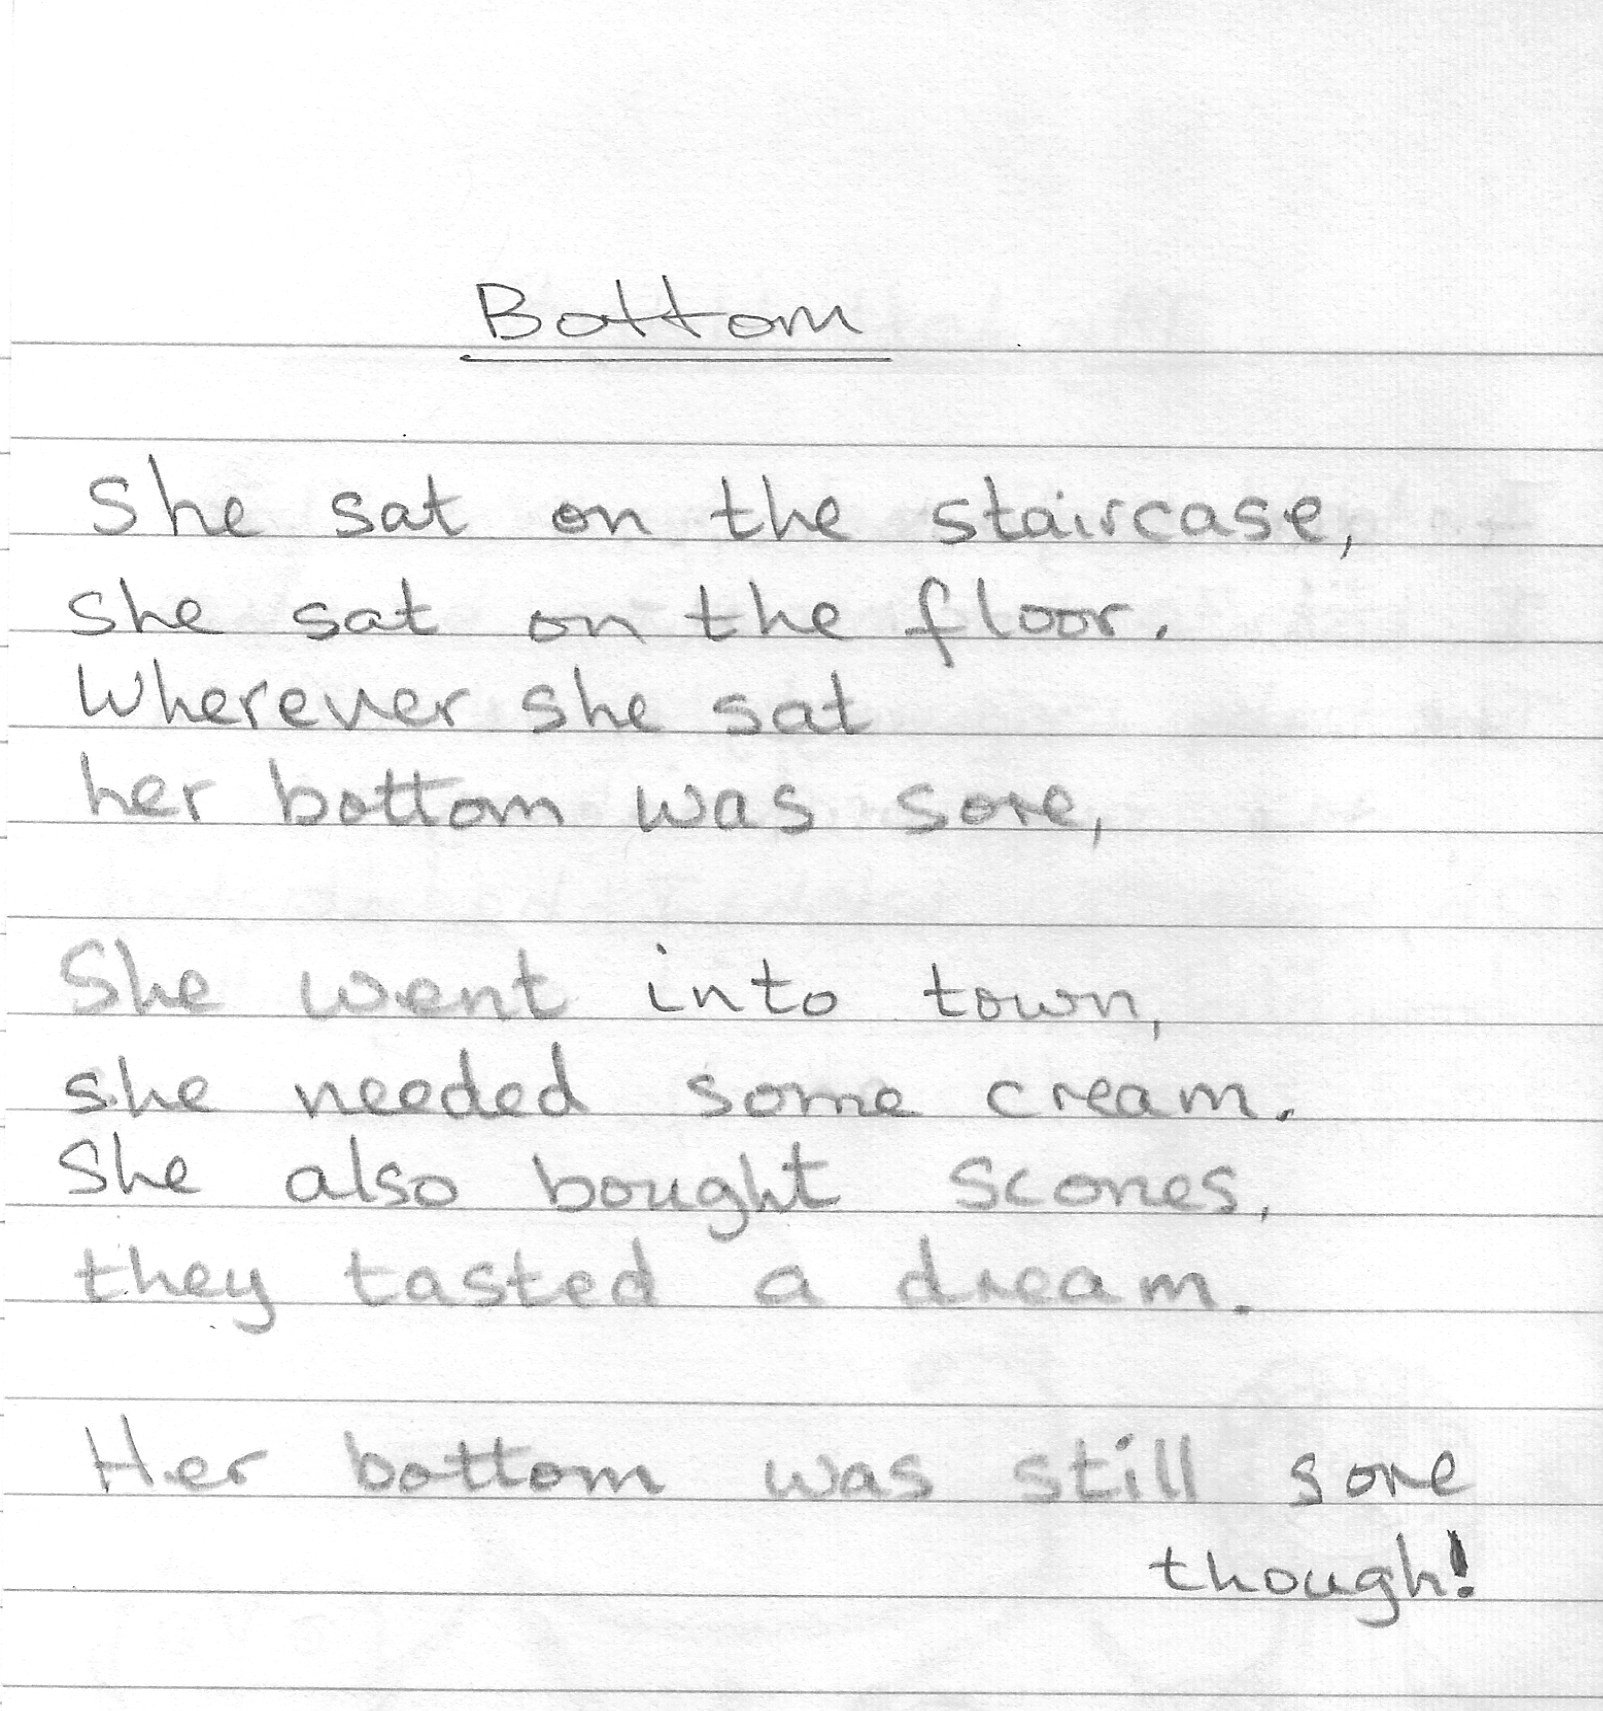 Bottom
She sat on the staircase,
she sat on the floor.
Wherever she sat
her bottom was sore,
She went into town,
she needed some cream.
She also bought scones,
they tasted a dream.
Her bottom was still sore
though!